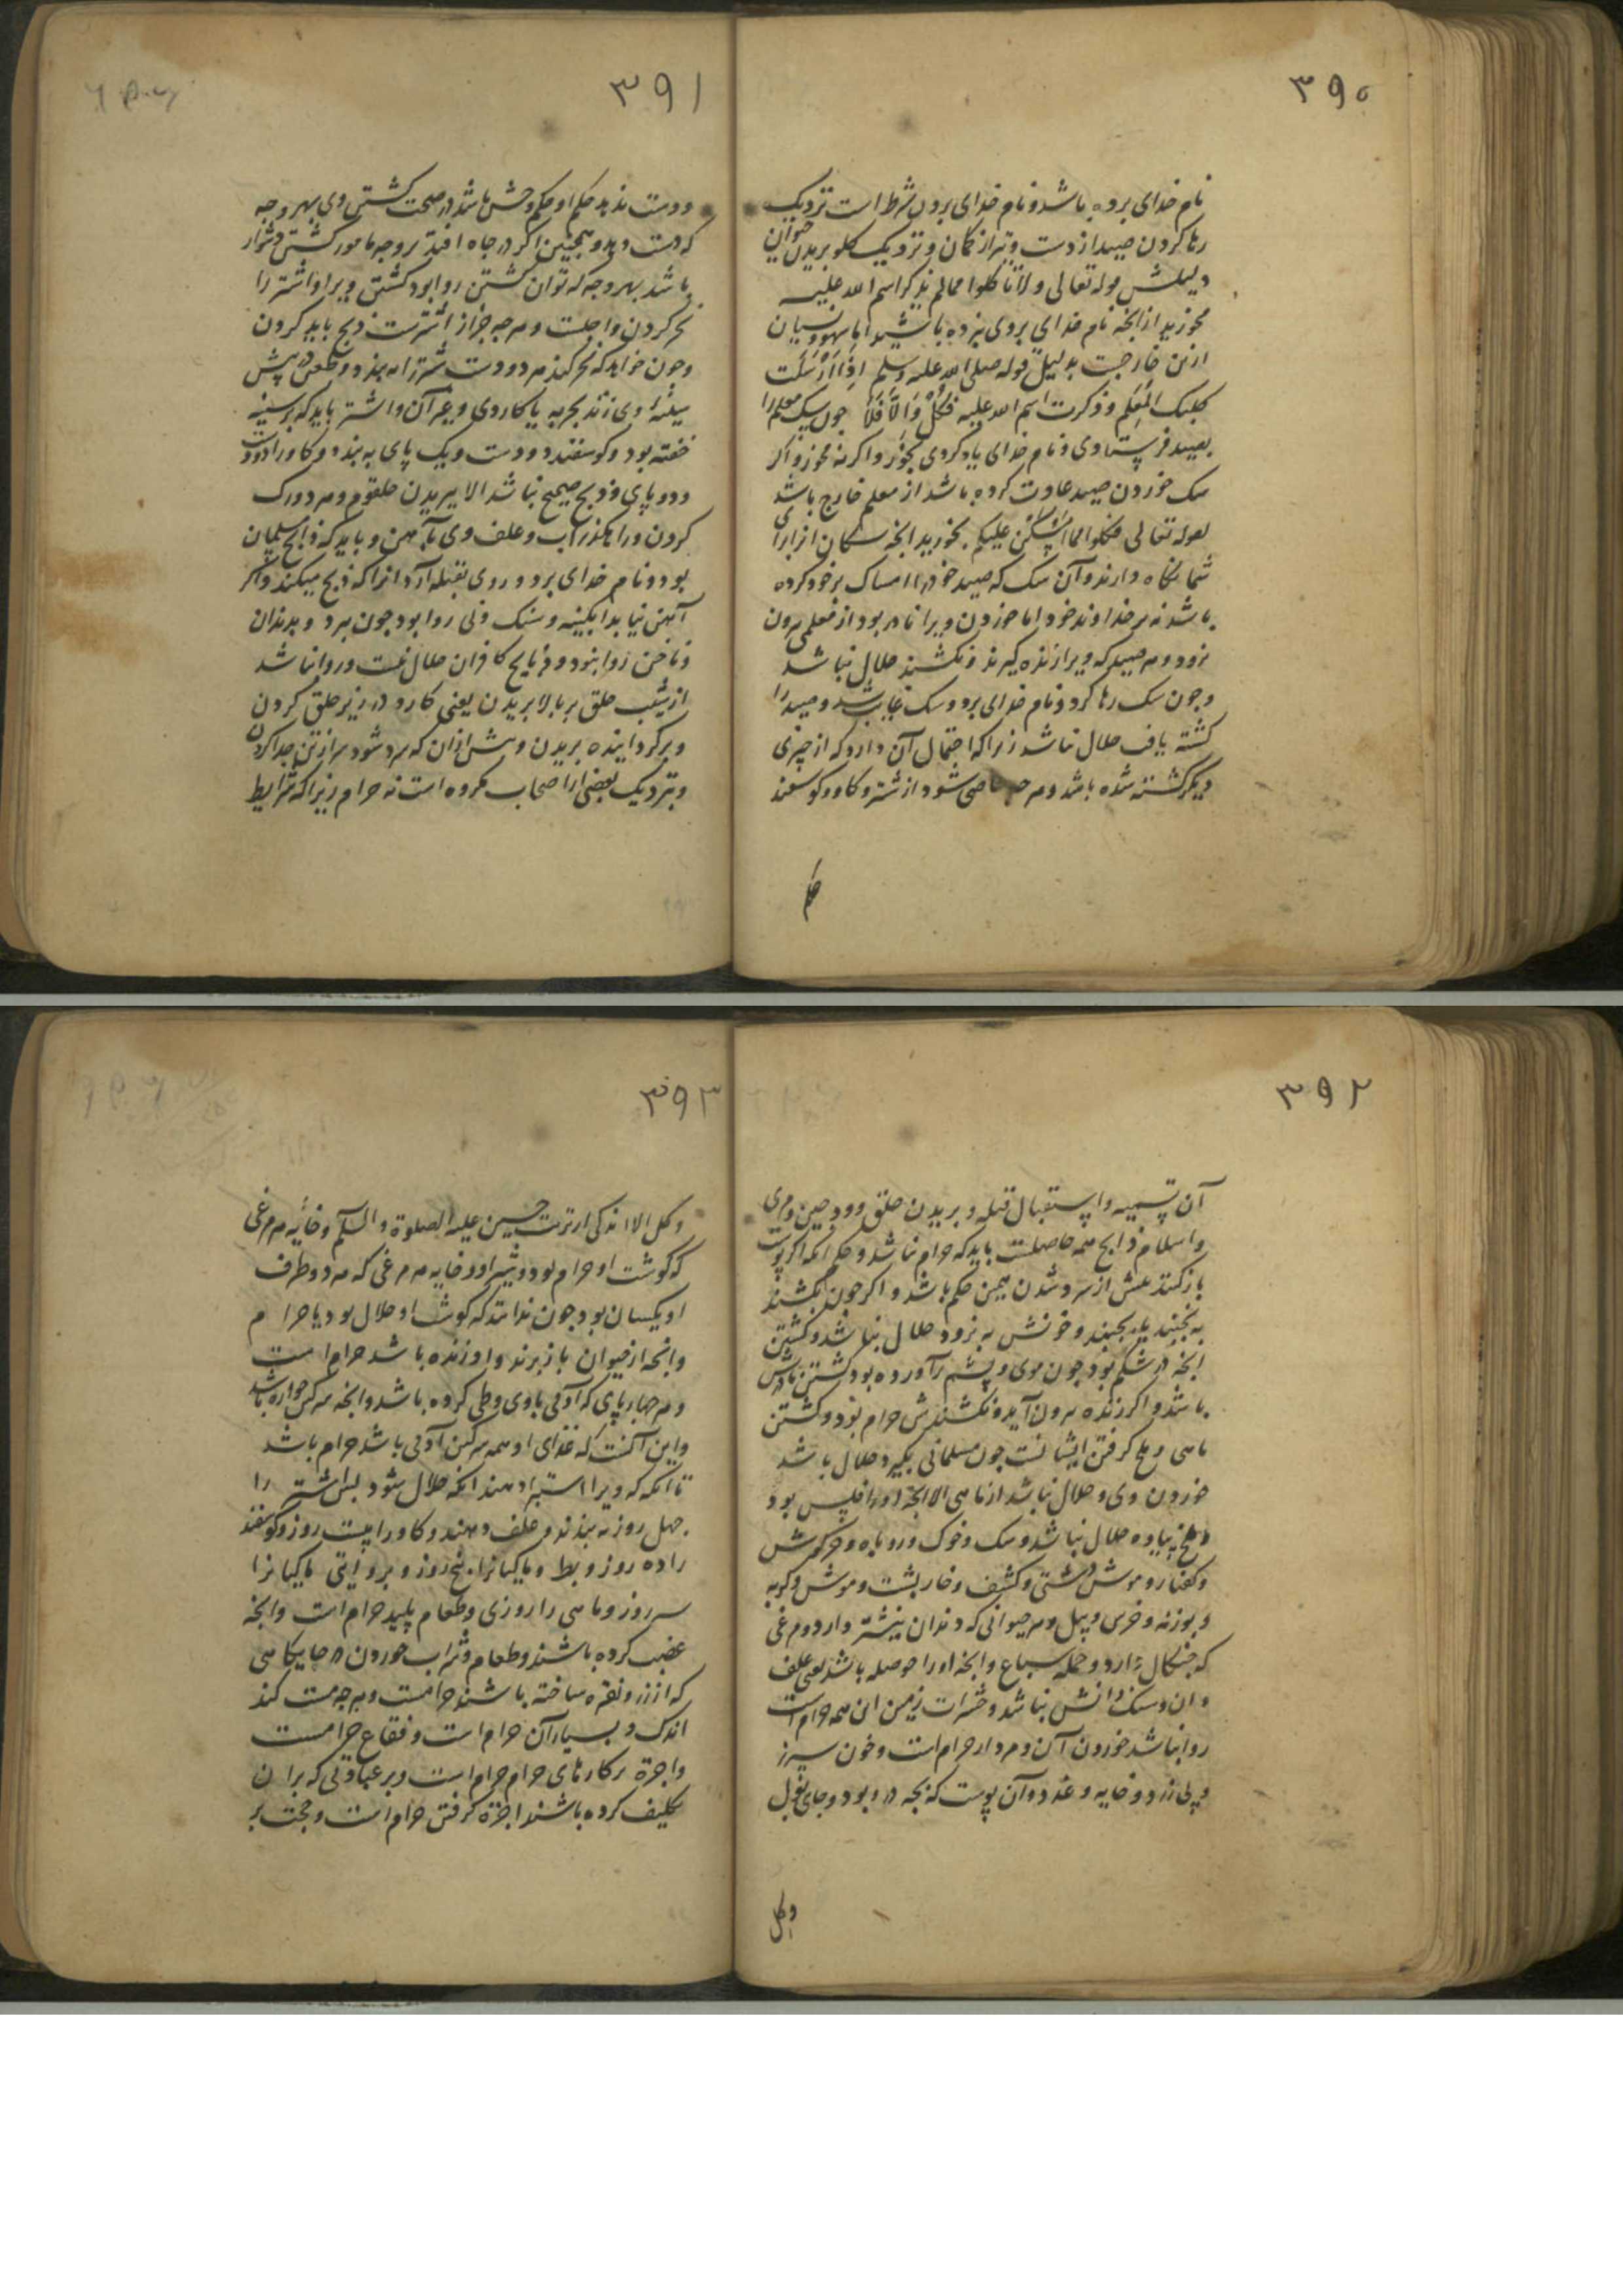 ۳۹۰
نام خدای برده باشد و نام خدای بردن شرط است نزدیک
رها کردن صید از دست و تیر از کمان و نزدیک کلو بریدن حیوان
دلیلش قوله تعالی ولا تاکلوا مما لم یذکر اسم الله علیه
مخورید از انچه نام خدای بر وی نبرده باشید اما سهو و نسیان
ازین خارجست بدلیل قوله صلی الله علیه وسلم اِذَا اَرْسَلْتَ
کلبک المُعلَّم وذکرت اسم الله علیه فَکُلْ وَاِلَّا فَلَا چون سک معلم را
بصید فرستادی و نام خدای یاد کردی بخور و اکر نه مخور و اکر
سک خوردن صید عادت کرده باشد از معلم خارج باشد
لقوله تعالی فکلوا مما امسکن علیکم بخورید انچه سکان از برای
شما نکاه دارند و آن سک که صید خورد امساک بر خود کرده
باشد نه بر خداوند خود اما خوردن ویرا نادر بود از معلمی بیرون
نرود و هر صید که ویرا زنده کیرند و نکشند حلال نباشد
و چون سک رها کرد و نام خدای برد و سک غایب شد و صید را
کشته یافت حلال نباشد زیرا که احتمال آن دارد که از چیزی
دیکر کشته شده باشد و هر چه عاصی شود از شتر و کاو و کوسفند
حکم
۳۹۱
و دست ندهد حکم او حکم وحش باشد در صحت کشتن وی بهر وجه
که دست دهد و همچنین اکر در چاه افتد بر وجه مامور کشتن دشوار
باشد بهر وجه که توان کشتن روا بود کشتن ویرا و اشتر را
نحر کردن واجبست و هر چه جز از اشترست ذبح باید کردن
و چون خواهد که نحر کند هر دو دست شتر را به بندد و طعن در پیش
سینهٔ وی زند بحربه یا کاردی و غیر آن و اشتر باید که بر سینه
خفته بود و کوسفند دو دست و یک پای به بندد و کاو را دو دست
و دو پای و ذبح صحیح نباشد الا ببریدن حلقوم و هر دو رک
کردن و راهکذر آب و علف وی بآهن و باید که ذابح مسلمان
بود و نام خدای برد و روی بقبله آرد انرا که ذبح میکند و اکر
آهن نیابد آبکینه و سنک و نی روا بود چون ببرد و بدندان
و ناخن روا نبود و ذبایح کافران حلال نیست و روا نباشد
از شیب حلق بر بالا بریدن یعنی کارد در زیر حلق کردن
و برکردانیده بریدن و پیش ازان که سرد شود سر از تن جدا کردن
و بنزدیک بعضی از اصحاب مکروه است نه حرام زیرا که شرایط
۳۹۲
آن تسمیه و استقبال قبله و بریدن حلق و ودجین و مری
و اسلام ذابح همه حاصلست باید که حرام نباشد و حکم آنکه اکر پوست
باز کنند پیش از سرد شدن همین حکم باشد و اکر چون بکشند
به نجنبد یا بجنبد و خونش به نرود حلال نباشد و کشتن
انچه در شکم بود چون موی و پشم برآورده بود کشتن مادرش
باشد و اکر زنده بیرون آید و نکشندش حرام بود و کشتن
ماهی و ملخ کرفتن ایشانست چون مسلمانی بکیرد حلال باشد
خوردن وی و حلال نباشد از ماهی الا انچه او را فلیس بود
و ملخ پیاده حلال نباشد و سک و خوک و روباه و خرکوش
و کفتار و موش دشتی و کشف و خارپشت و موش و کربه
و بوزنه و خرس و پیل و هر حیوانی که دندان نیشتر دارد و مرغی
که چنکال دارد و جمله سباع و انچه او را حوصله باشد یعنی علف
دان و سنک دانش نباشد و حشرات زمین این همه حرام است
روا نباشد خوردن آن و مردار حرام است و خون سپرز
و پی زرد و خایه و غدد و آن پوست که بچه در و بود و جای بول
و کل
۳۹۳
و کل الا اندکی از تربت حسین علیه الصلوة والسلم و خایهٔ هر مرغی
که کوشت او حرام بود و شیر او و خایه هر مرغی که هر دو طرف
او یکسان بود چون ندانند که کوشت او حلال بود یا حرام
و انچه از حیوان باز برند و او زنده باشد حرام است
و هر چهارپای که آدمی با وی وطی کرده باشد و انچه سرکین خواره باشد
و این آنست که غذای او همه سرکین آدمی باشد حرام باشد
تا آنکه که ویرا استبرا دهند انکه حلال شود پس اشتر را
چهل روز به بندند و علف دهند و کاو را بیست روز و کوسفند
را ده روز و بط و ماکیانرا پنج روز و بروایتی ماکیانرا
سه روز و ماهی را روزی و طعام پلید حرام است و انچه
غصب کرده باشند و طعام و شراب خوردن در جایکاهی
که از زر و نقره ساخته باشند حرامست و هر چه مست کند
اندک و بسیار آن حرام است و فقاع حرامست
و اجرة بر کارهای حرام حرام است و بر عبادتی که بر آن
تکلیف کرده باشند اجرة کرفتن حرام است و حجت بر